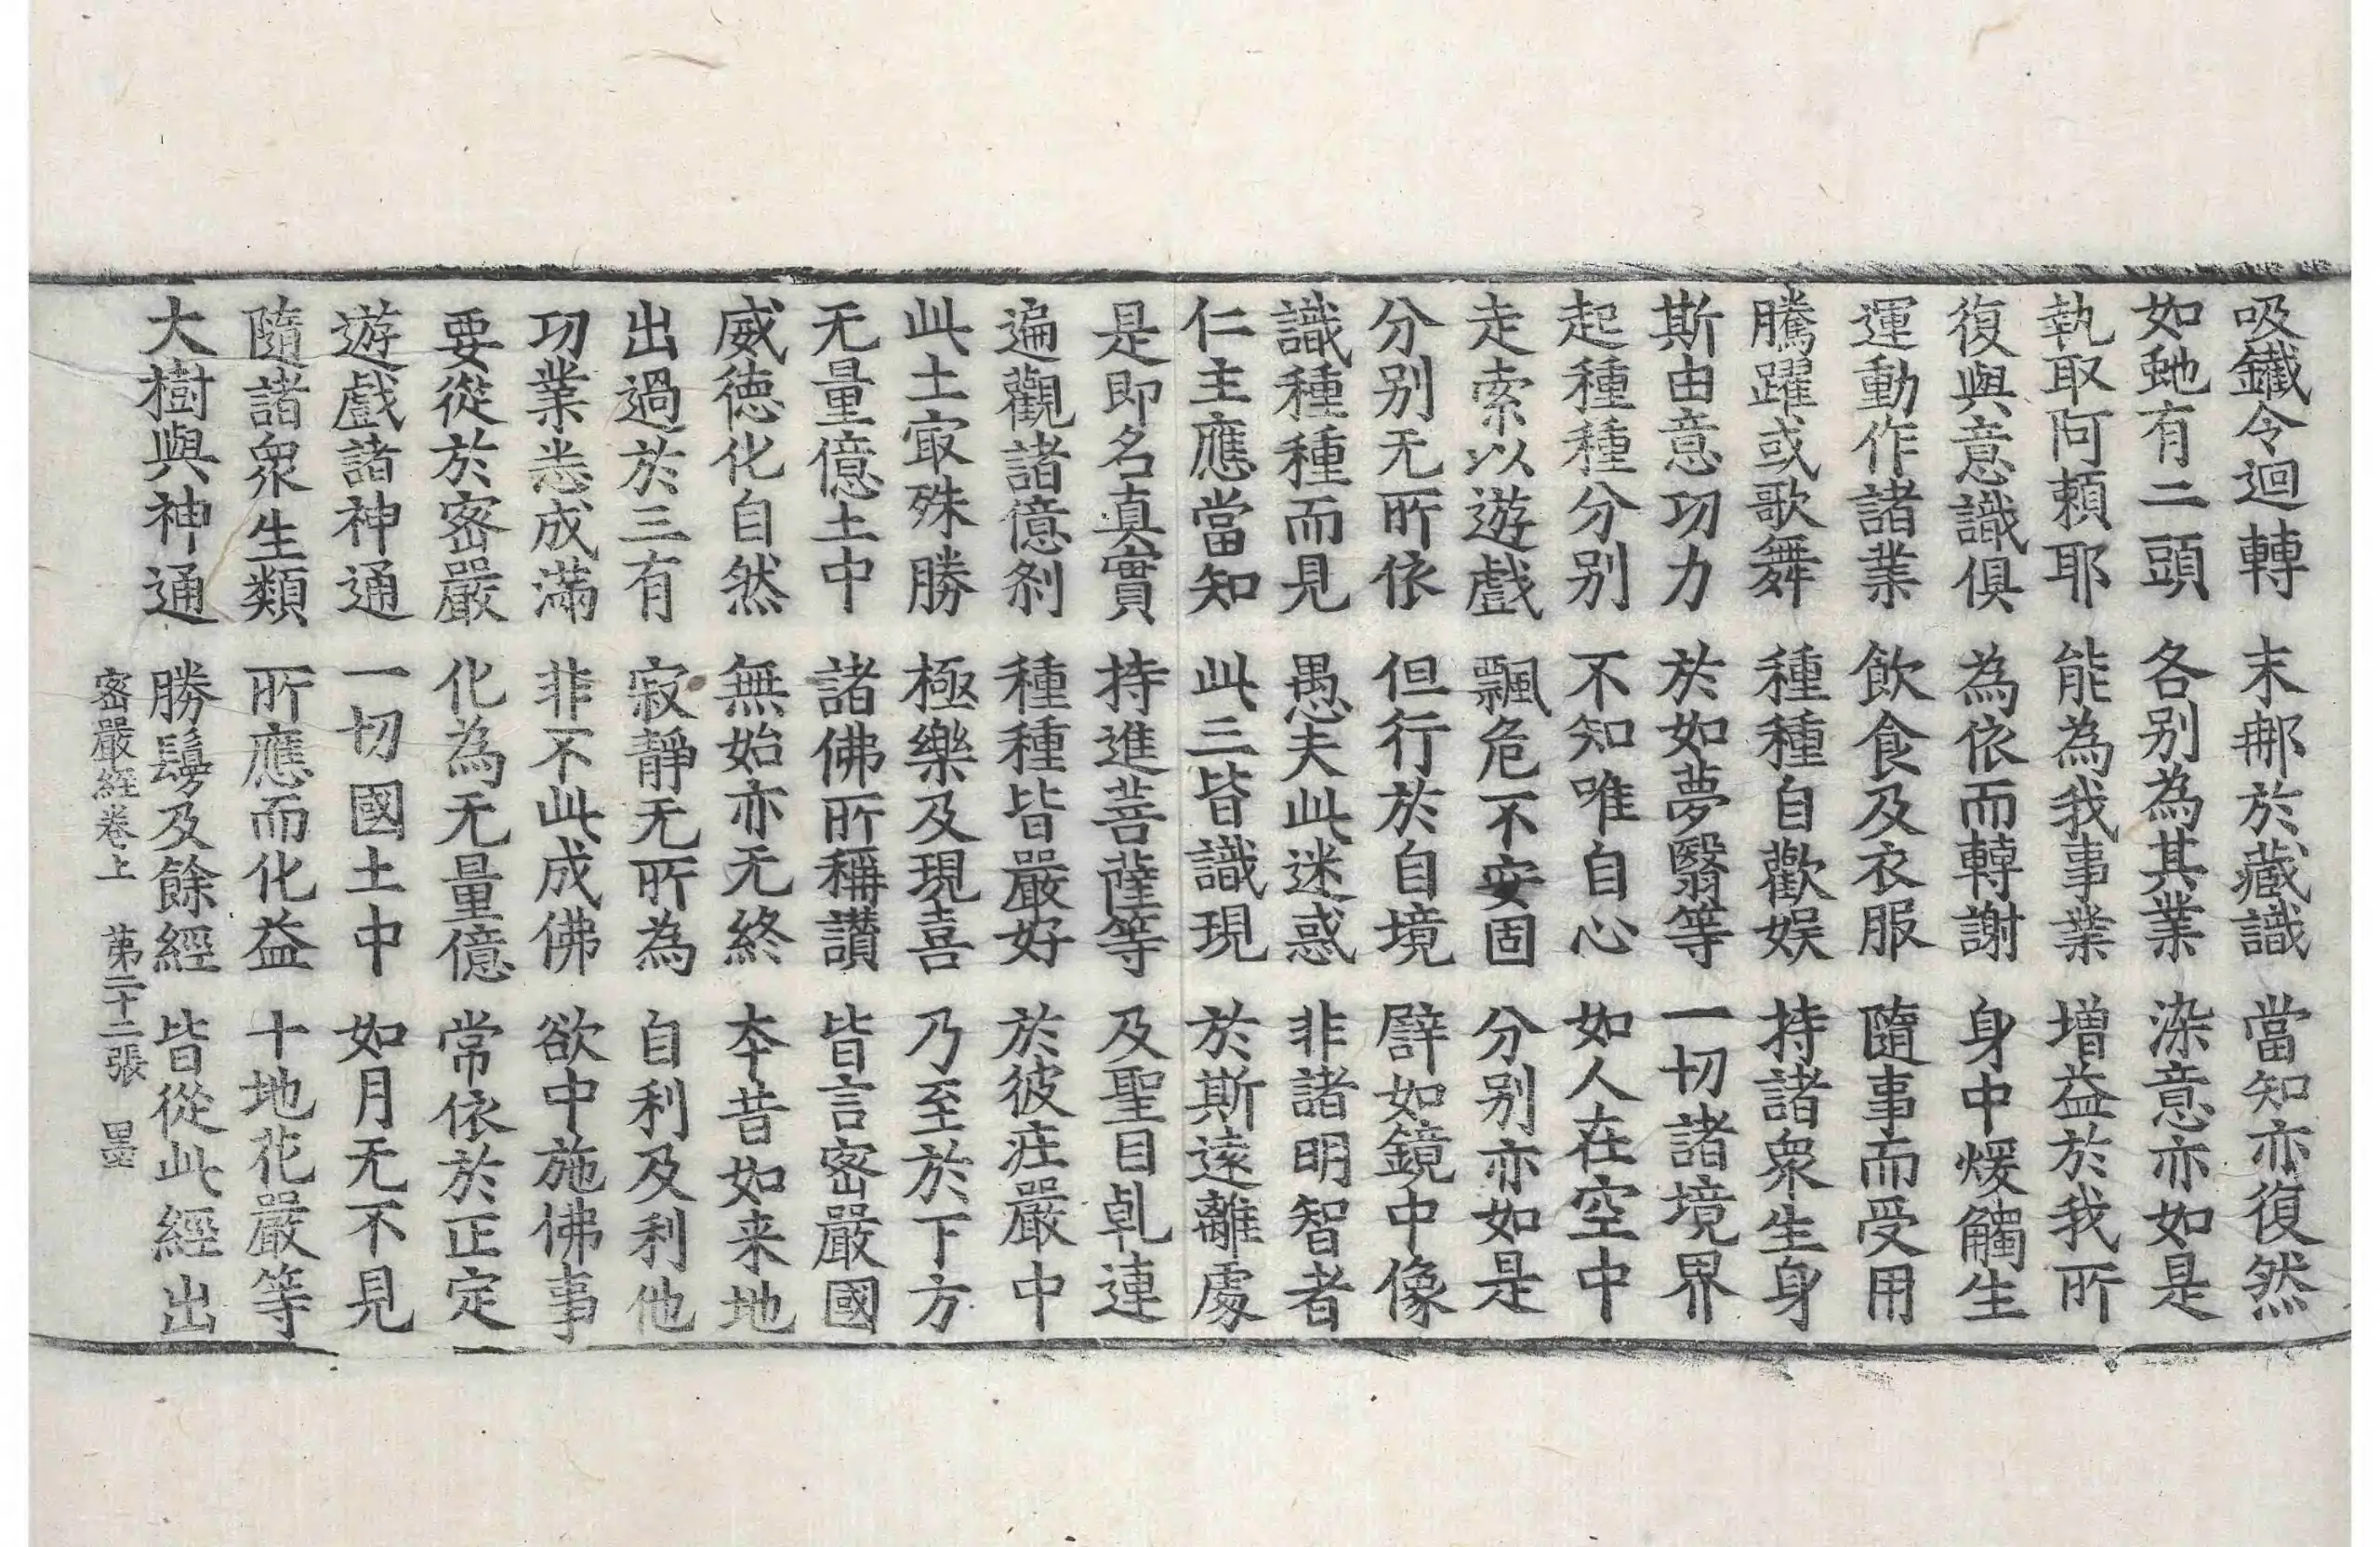 吸鐵令迴轉　末那於藏識　當知亦復然
如虵有二頭　各別為其業　染意亦如是
執取阿賴耶　能為我事業　增益於我所
復與意識俱　為依而轉謝　身中煖觸生
運動作諸業　飲食及衣服　隨事而受用
騰躍或歌舞　種種自歡娛　持諸衆生身
斯由意功力　於如夢翳等　一切諸境界
起種種分別　不知唯自心　如人在空中
走索以遊戲　飄危不安固　分別亦如是
分別无所依　但行於自境　譬如鏡中像
識種種而見　愚夫此迷惑　非諸明智者
仁主應當知　此三皆識現　於斯遠離處
是即名真實　持進菩薩等　及聖目乹連
遍觀諸億剎　種種皆嚴好　於彼㽵嚴中
此土㝡殊勝　極樂及現喜　乃至於下方
无量億土中　諸佛所稱讃　皆言密嚴國
威德化自然　無始亦无終　夲昔如来地
出過於三有　寂靜无所為　自利及利他
功業悉成滿　非不此成佛　欲中施佛事
要從於密嚴　化為无量億　常依於正定
遊戲諸神通　一切國土中　如月无不見
隨諸衆生類　所應而化益　十地花嚴等
大樹與神通　勝鬘及餘經　皆從此經出
密嚴經卷上　第二十二張　墨